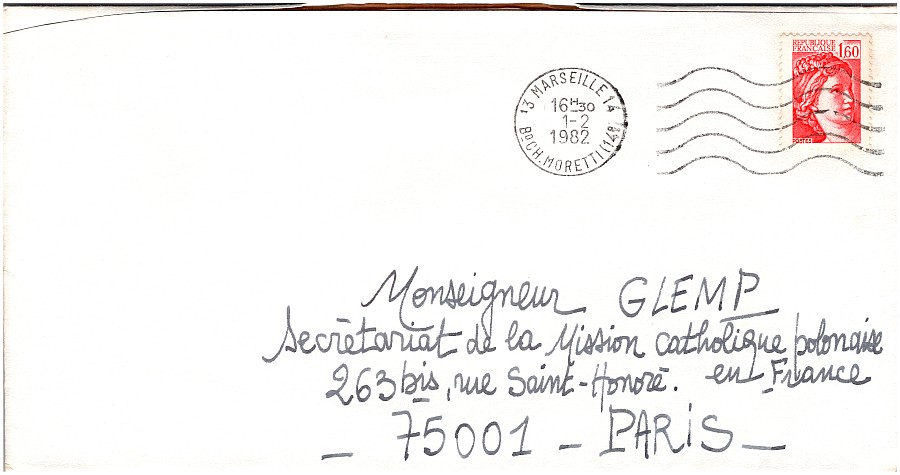 RÉPUBLIQUE
FRANÇAISE 1,60
POSTES
13 MARSEILLE 14
16H30
1-2
1982
BD CH. MORETTI (148)
Monseigneur GLEMP
Secrétariat de la Mission catholique polonaise
263 bis, rue Saint-Honoré. en France
_ 75001 _ PARIS _